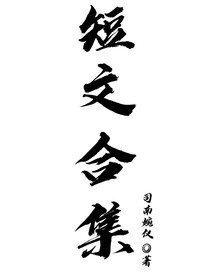 短文合集
司南婉仪◎著